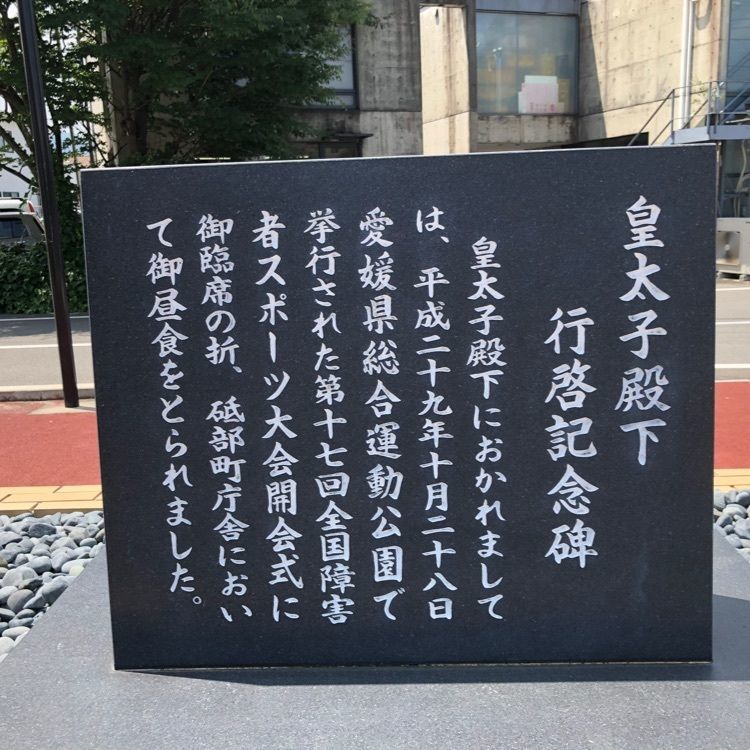 皇太子殿下
行啓記念碑
皇太子殿下におかれまして
は、平成二十九年十月二十八日
愛媛県総合運動公園で
挙行された第十七回全国障害
者スポーツ大会開会式に
御臨席の折、砥部町庁舎におい
て御昼食をとられました。